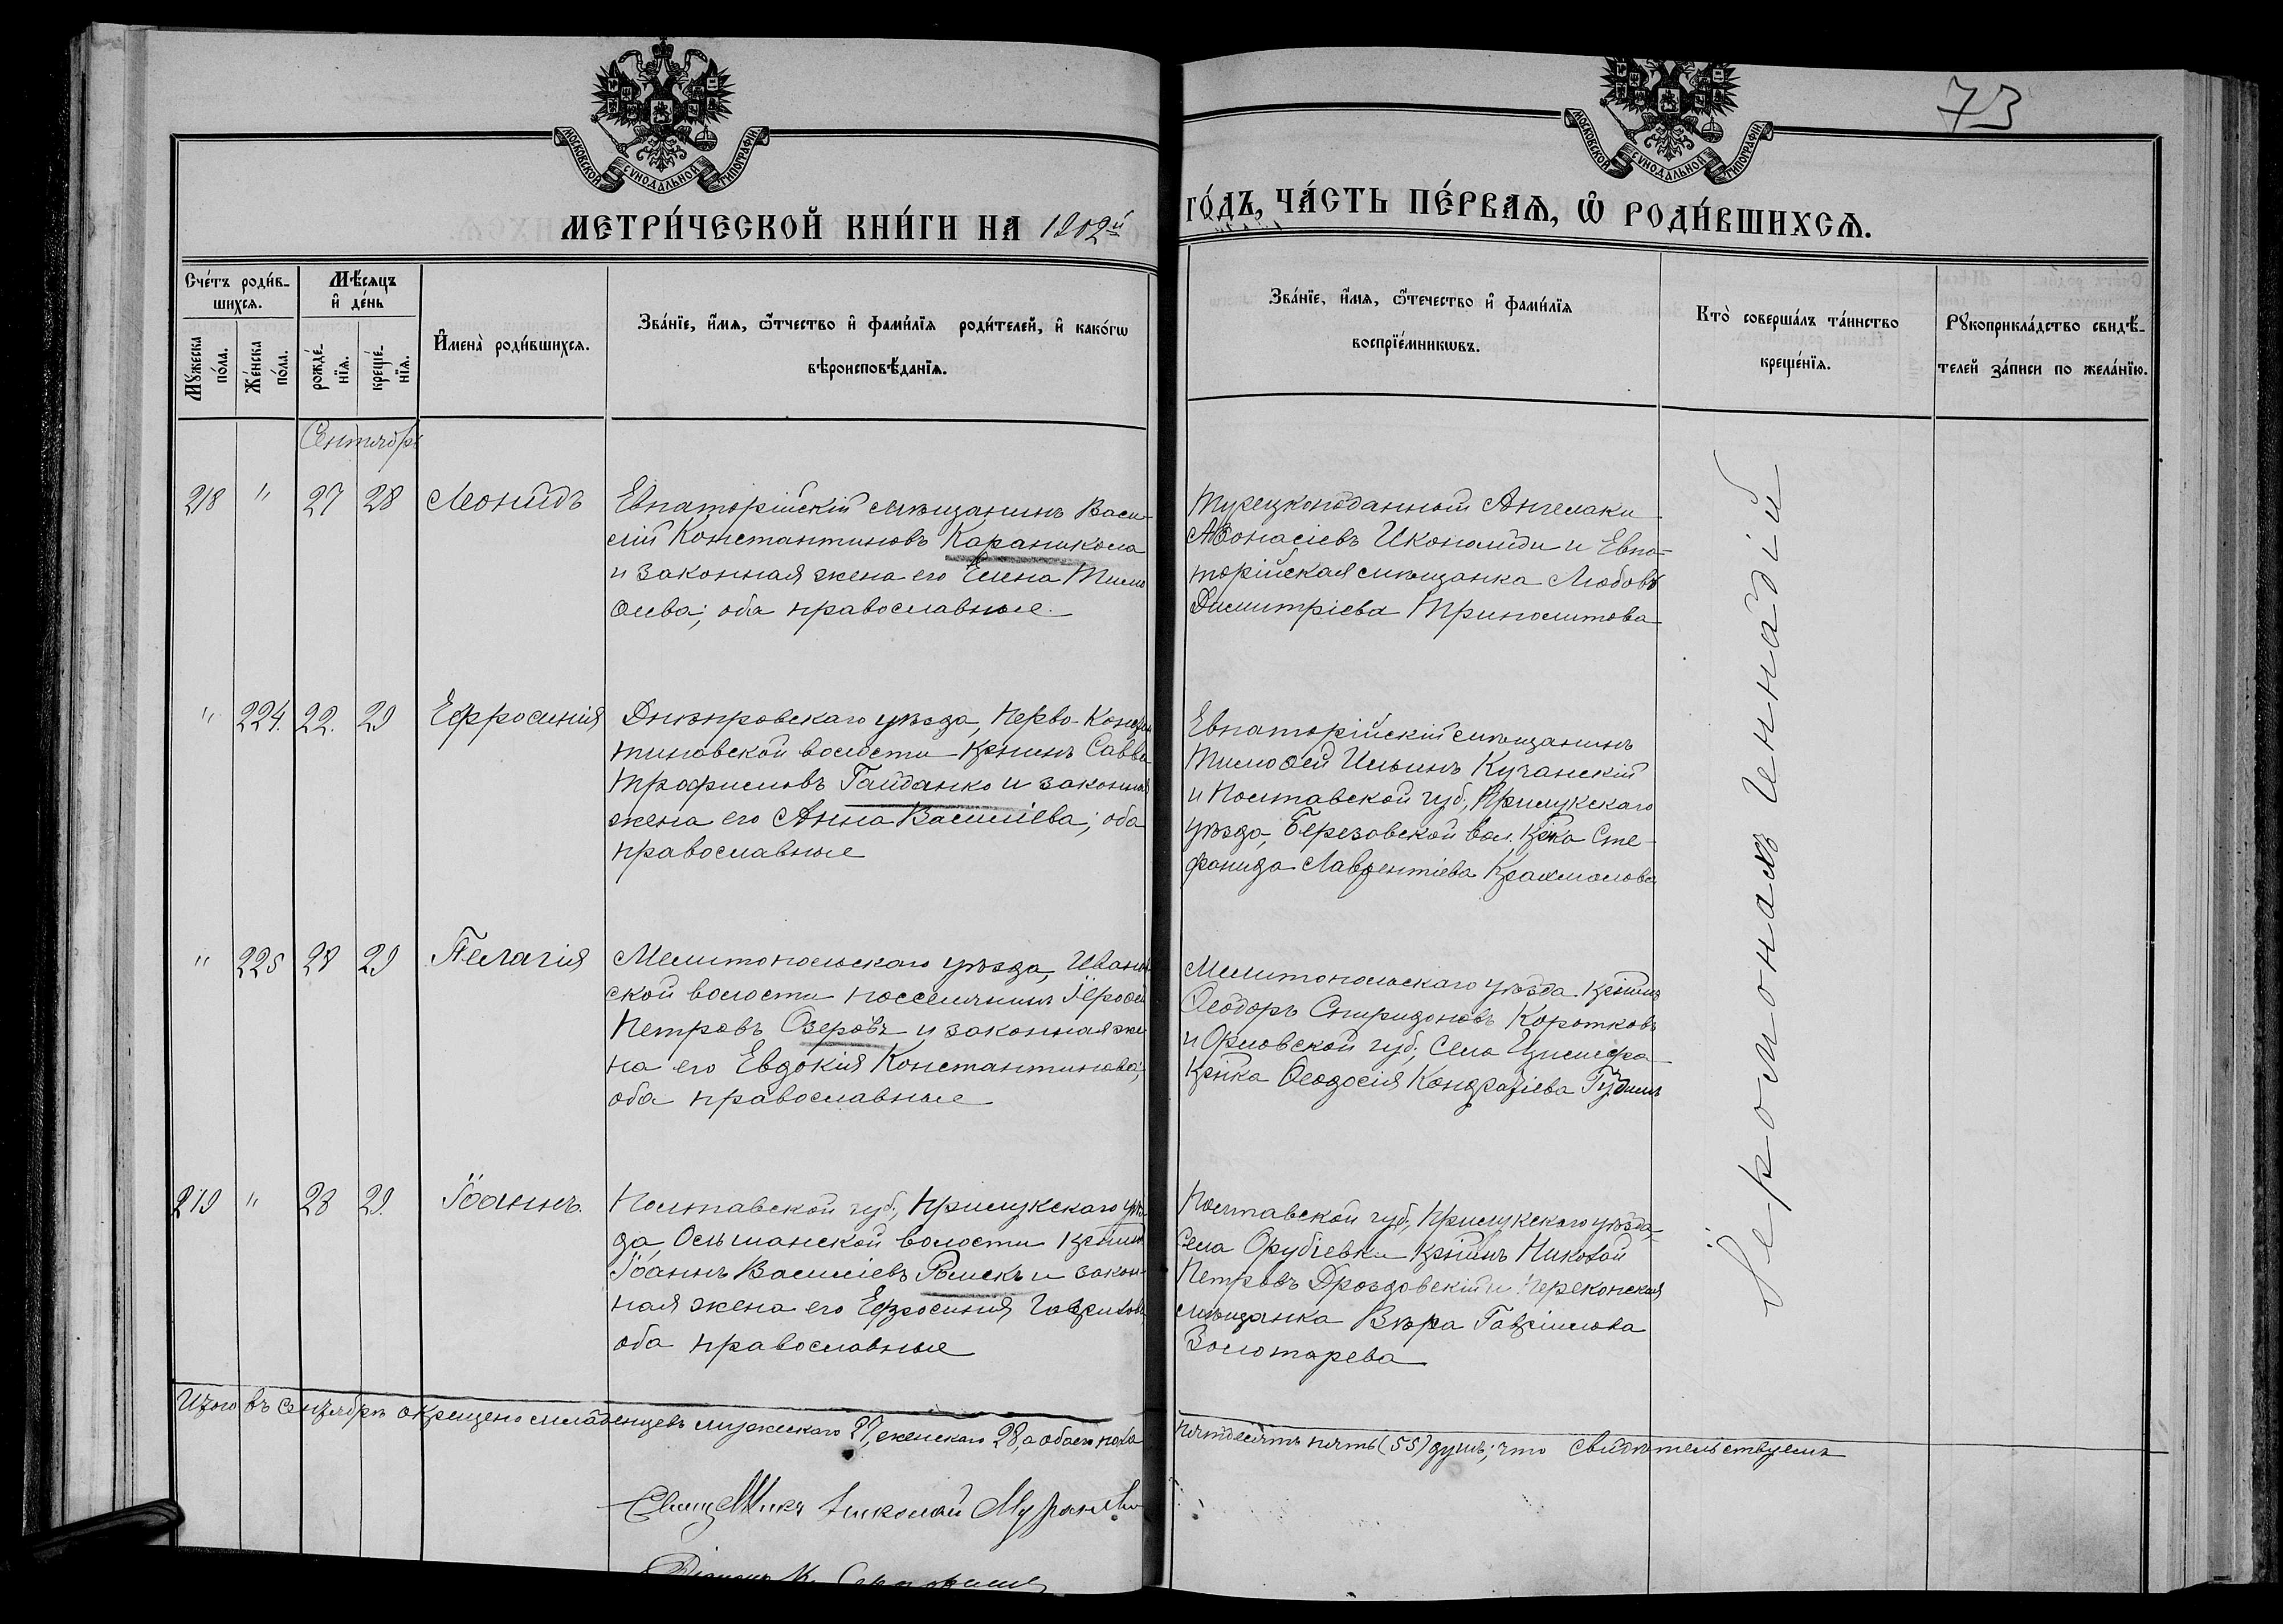 73
МОСКОВСКОЙ СѴНОДАЛЬНОЙ ТИПОГРАФІИ
МОСКОВСКОЙ СѴНОДАЛЬНОЙ ТИПОГРАФІИ
МЕТРИ́ЧЕСКОЙ КНИ́ГИ НА 1902й
ГО́ДЪ, ЧА́СТЬ ПЕ́РВАѦ, Ѽ РОДИ́ВШИХСѦ.
Сче́тъ роди́в-
шихсѧ.
Мѣ́сѧцъ
и҆ де́нь
Мꙋ́жеска
по́ла.
Же́нска
по́ла.
рожде́-
нїѧ.
креще́-
нїѧ.
И҆мена̀ роди́вшихсѧ.
Зва́нїе, и҆́мѧ, ѻ҆́тчество и҆ фами́лїѧ роди́телей, и҆ како́гѡ
вѣроисповѣ́данїѧ.
Зва́нїе, и҆́мѧ, ѻ҆́течество и҆ фами́лїѧ
воспрїе́мникѡвъ.
Кто̀ соверша́лъ та́инство
креще́нїѧ.
Рꙋкоприкла́дство свидѣ́-
телей за́писи по жела́нїю.
Сентябрь
218 " 27 28 Леонидъ
Евпаторійскій мѣщанинъ Васи-
лій Константиновъ Караникола
и законная жена его Елена Тимо
ѳеева; оба православные.
Турецкоподанный Ангелаки
Аѳонасіевъ Икономиди и Евпа-
торійская мѣщанка Любовь
Димитріева
" 224. 22. 29 Ефросинія
Днѣпровскаго уѣзда, Перво-Констан
тиновской волости кр̄нинъ Савва
Трофимовъ Гайданко и законная
жена его Анна Василіева; оба
православные
Евпаторійскій мѣщанинъ
Тимоѳей Ильинъ Кучанскій
и Полтавской губ., Прилукскаго
уѣзда, Березовской вол. кр̄ка Сте-
фанида Лаврентіева Крахмалова
" 225 28 29 Пелагія
Мелитопольскаго уѣзда, Иванов
ской волости поселянинъ Іероѳей
Петровъ Озеровъ и законная же
на его Евдокія Константинова;
оба православные
Мелитопольскаго уѣзда кр̄нинъ
Ѳеодоръ Спиридоновъ Коротковъ
и Орловской губ., села
кр̄нка Ѳеодосія Кондратіева
219 " 28 29. Іоаннъ.
Полтавской губ., Прилукскаго уѣз
да, Ольшанской волости кр̄нинъ
Іоаннъ Василіевъ и закон-
ная жена его Ефросинія Гаврилова
оба православные
Полтавской губ., Прилукскаго уѣзда,
села кр̄нинъ Николай
Петровъ Дроздовскій и Перекопская
мѣщанка Вѣра Гавріилова
Золотарева
Іеромонахъ Иннадій
Итого въ Сентябрѣ окрещено младенцевъ мужескаго 27, женскаго 28, а обоего пола
пятдесятъ пять (55) душъ; что свидѣтельствуемъ
Священникъ Николай
Діаконъ